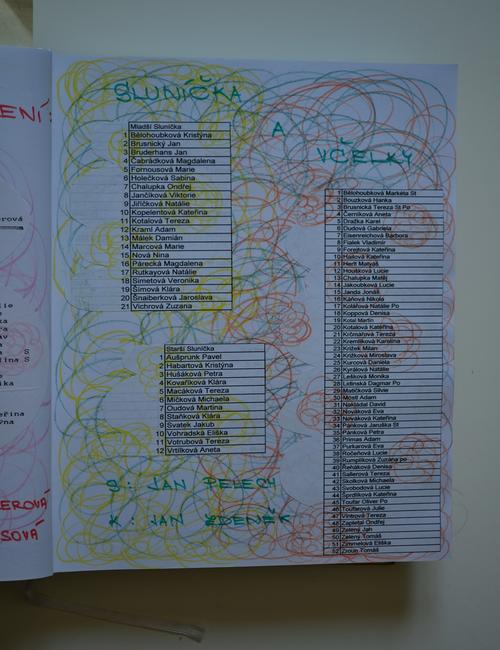 ENÍ:
SLUNÍČKA
A
VČELKY
Mladší Sluníčka
1 Bělohoubková Kristýna
2 Brusnický Jan
3 Bruderhans Jan
4 Čabrádková Magdalena
5 Fornousová Marie
6 Holečková Sabina
7 Chalupka Ondřej
8 Jančíková Viktorie
9 Jiříčková Natálie
10 Kopelentová Kateřina
11 Kotalová Tereza
12 Kraml Adam
13 Málek Damián
14 Marcová Marie
15 Nová Nina
16 Párecká Magdalena
17 Rutkayová Natálie
18 Simetová Veronika
19 Šímová Klára
20 Šnaiberková Jaroslava
21 Vichrová Zuzana
Starší Sluníčka
1 Aušprunk Pavel
2 Habartová Kristýna
3 Hušáková Petra
4 Kovaříková Klára
5 Macáková Tereza
6 Mičková Michaela
7 Oudová Martina
8 Staňková Klára
9 Svatek Jakub
10 Vohradská Eliška
11 Votrubová Tereza
12 Vrtílková Aneta
S: JAN PELECH
K: JAN ZDENĚK
1 Bělohoubková Markéta St
2 Bouzková Hanka
3 Brusnická Tereza St Po
4 Černíková Aneta
5 Dražka Karel
6 Dudová Gabriela
7 Eisenreichová Barbora
8 Fialek Vladimír
9 Forejtová Kateřina
10 Hailová Kateřina
11 Herit Matyáš
12 Houšková Lucie
13 Chalupka Matěj
14 Jakoubková Lucie
15 Janda Jonáš
16 Káňová Nikola
17 Kolářová Natálie Po
18 Koppová Denisa
19 Kotal Martin
20 Kotalová Kateřina
21 Krčmářová Tereza
22 Kremliková Karolína
23 Křížek Milan
24 Křížková Miroslava
25 Kurcová Daniela
26 Kyralová Natálie
27 Lešková Monika
28 Lidinská Dagmar Po
29 Matičková Silvie
30 Mostl Adam
31 Nakládal David
32 Nováková Eva
33 Nováková Kateřina
34 Pánková Jaruška St
35 Pánková Petra
36 Primas Adam
37 Purkarová Eva
38 Ročeňová Lucie
39 Rumplíková Zuzana po
40 Řeháková Denisa
41 Sallerová Tereza
42 Skolková Michaela
43 Svobodová Lucie
44 Šprdlíková Kateřina
45 Toufar Oliver Po
46 Toufarová Julie
47 Vintrová Tereza
48 Zapletal Ondřej
49 Zelený Jan
50 Zelený Tomáš
51 Zimmelová Eliška
52 Zroun Tomáš